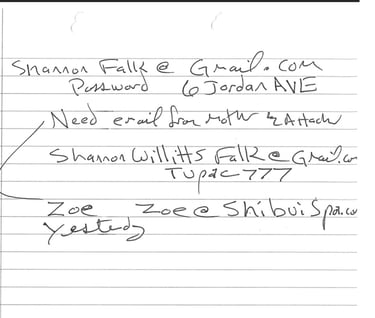 Shannon Falk @ Gmail.com
Password 6 Jordan AVE
Need email from Mother & Attach
Shannon Willitts Falk @ Gmail.com
Tupac 777
Zoe Zoe @ Shibui Spa.co
Yesterday